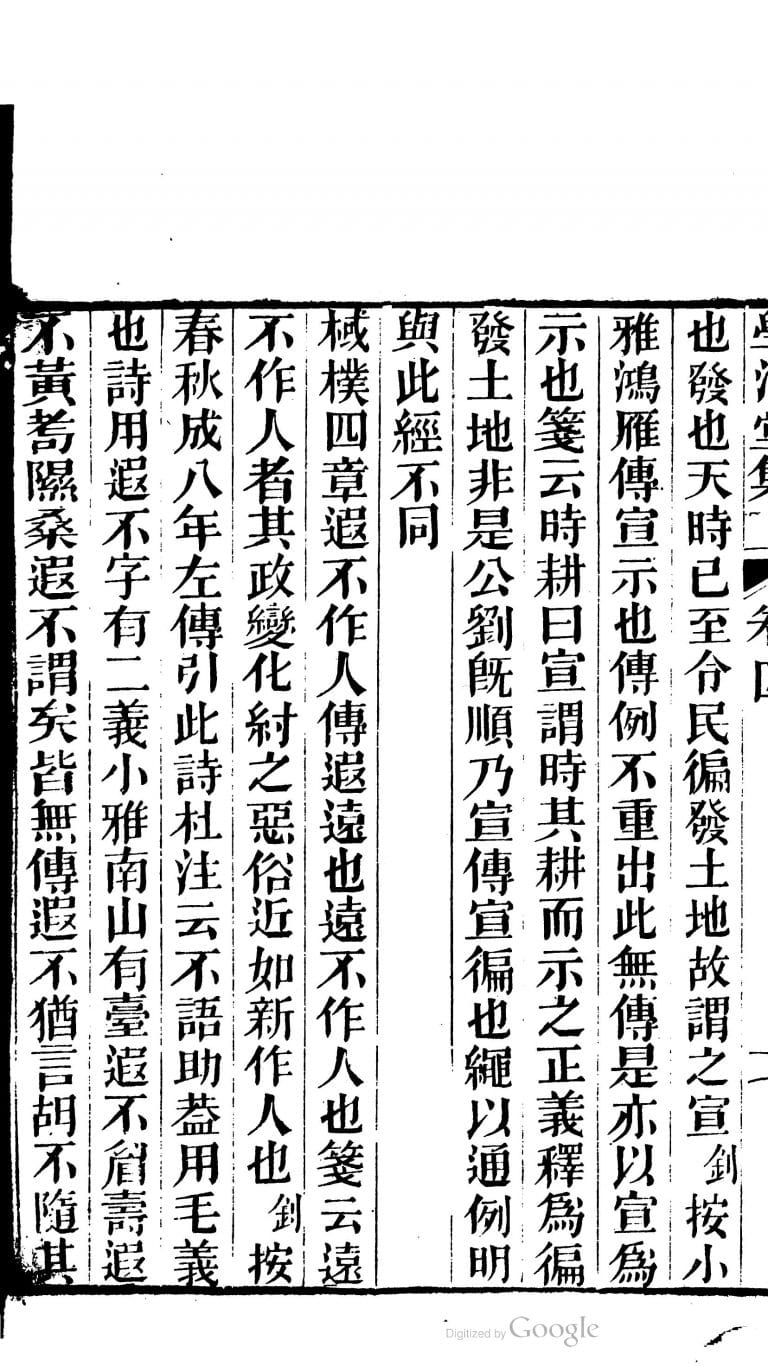 學海堂集二 卷四 二
也發也天時已至令民徧發土地故謂之宣釗按小
雅鴻雁傳宣示也傳例不重出此無傳是亦以宣爲
示也箋云時耕曰宣謂時其耕而示之正義釋爲徧
發土地非是公劉旣順乃宣傳宣徧也繩以通例明
與此經不同
棫樸四章遐不作人傳遐遠也遠不作人也箋云遠
不作人者其政變化紂之惡俗近如新作人也釗按
春秋成八年左傳引此詩杜注云不語助葢用毛義
也詩用遐不字有二義小雅南山有臺遐不眉壽遐
不黃耇隰桑遐不謂矣皆無傳遐不猶言胡不隨其
Digitized by Google